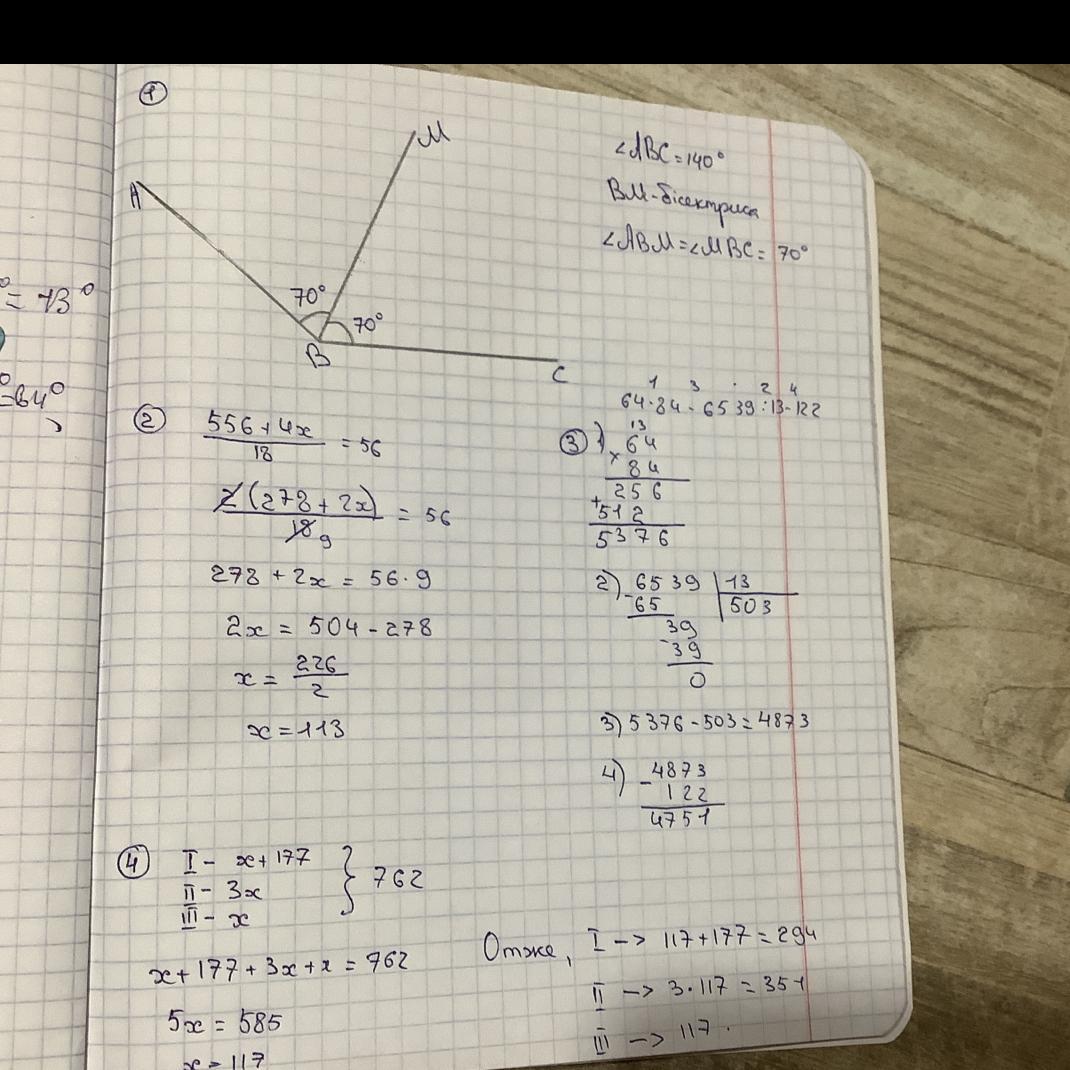 = 73°
= 64°
①
M
A
70°
70°
B
C
∠ABC = 140°
BM - бісектриса
∠ABM = ∠MBC = 70°
②
556 + 4x / 18 = 56
2(278 + 2x) / 18 9 = 56
278 + 2x = 56 · 9
2x = 504 - 278
x = 226 / 2
x = 113
1 3 · 2 4
64 · 84 - 6539 : 13 - 122
③ 1)
13
64
× 84
256
+ 512
5376
2) - 6539 | 13
65 | 503
39
- 39
0
3) 5376 - 503 = 4873
4) - 4873
122
4751
④
I - x + 177
II - 3x } 762
III - x
x + 177 + 3x + x = 762
5x = 585
x = 117
Отже, I -> 117 + 177 = 294
II -> 3 · 117 = 351
III -> 117.